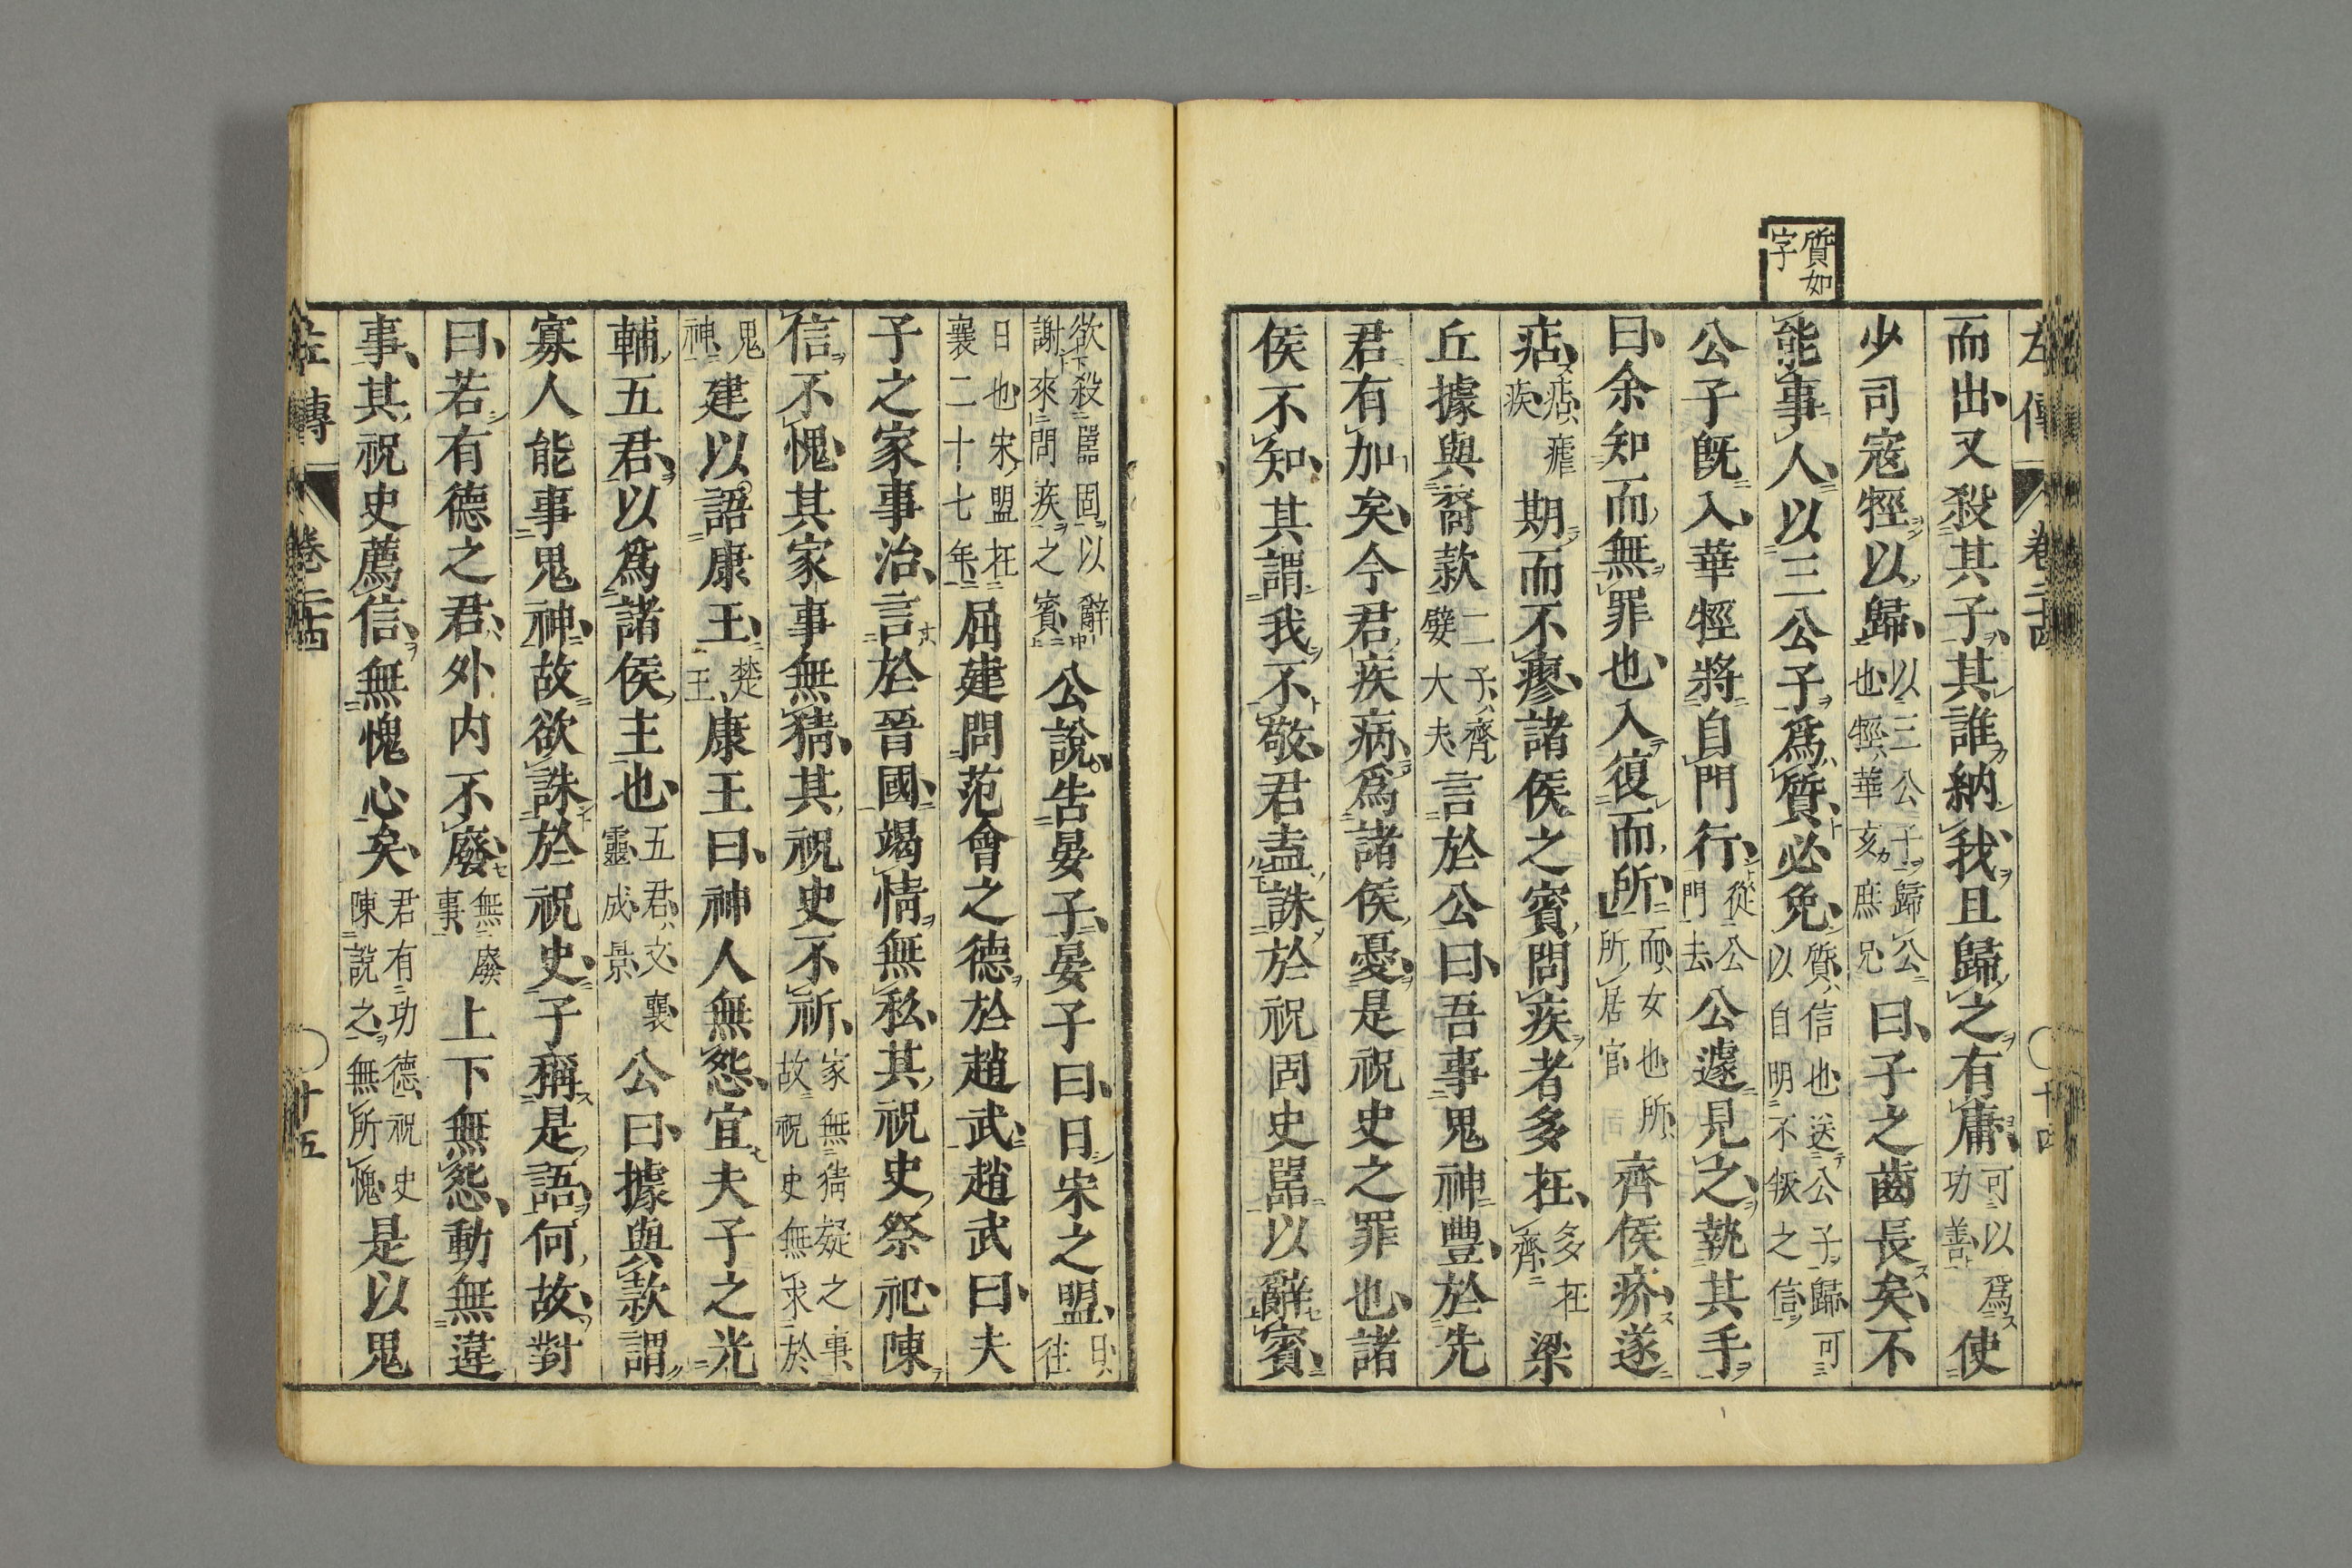 質如字
左傳 卷二十四 十四
而出又殺其子其誰納我且歸之有庸可以爲功善使
少司寇牼以歸以三公子歸公也牼華亥庶兄曰子之齒長矣不
能事人以三公子爲質必免質信也送公子歸可以自明不叛之信
公子既入華牼將自門行從公門去公遽見之執其手
曰余知而無罪也入復而所而女也所所居官齊侯疥遂
痁痁瘧疾期而不瘳諸侯之賓問疾者多在多在齊梁
丘據與裔款二子齊嬖大夫言於公曰吾事鬼神豐於先
君有加矣今君疾病爲諸侯憂是祝史之罪也諸
侯不知其謂我不敬君盍誅於祝固史嚚以辭賓
欲殺嚚固以辭謝來問疾之賓公說告晏子晏子曰日宋之盟日往
日也宋盟在襄二十七年屈建問范會之德於趙武趙武曰夫
子之家事治言於晉國竭情無私其祝史祭祀陳
信不愧其家事無猜其祝史不祈家無猜疑之事故祝史無求於
鬼神建以語康王楚王康王曰神人無怨宜夫子之光
輔五君以爲諸侯主也五君文襄靈成景公曰據與款謂
寡人能事鬼神故欲誅於祝史子稱是語何故對
曰若有德之君外内不廢無廢事上下無怨動無違
事其祝史薦信無愧心矣君有功德祝史陳說之無所愧是以鬼
左傳 卷二十四 十五